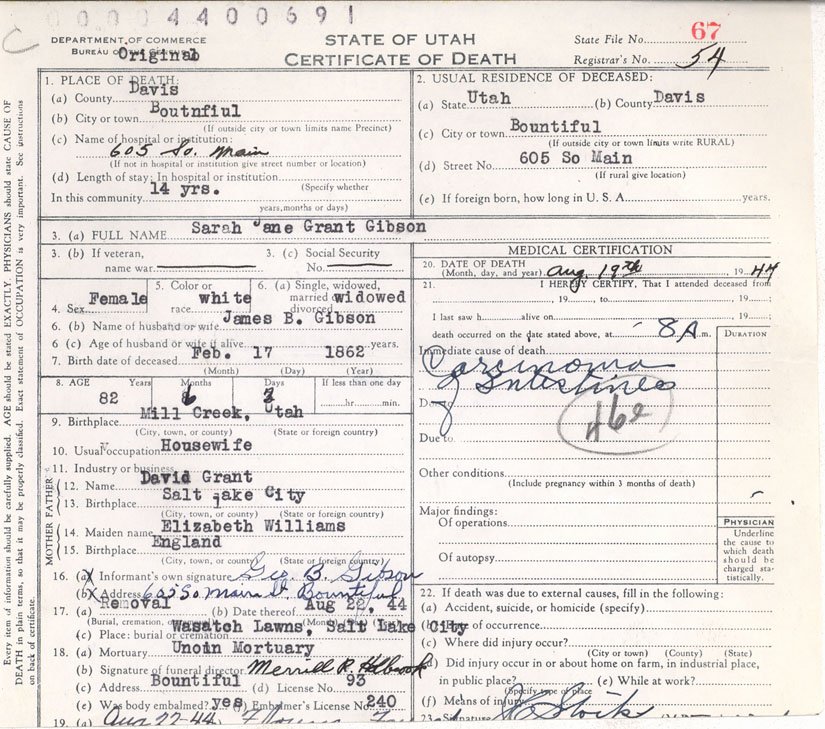 0 0 0 4 4 0 0 6 9 1
DEPARTMENT OF COMMERCE
BUREAU OF THE CENSUS
Original
STATE OF UTAH
CERTIFICATE OF DEATH
State File No. 67
Registrar's No. 54
Every item of information should be carefully supplied. AGE should be stated EXACTLY. PHYSICIANS should state CAUSE OF
DEATH in plain terms, so that it may be properly classified. Exact statement of OCCUPATION is very important. See instructions
on back of certificate.
1. PLACE OF DEATH:
(a) County Davis
(b) City or town Boutnfiul
(If outside city or town limits name Precinct)
(c) Name of hospital or institution:
605 So. Main
(If not in hospital or institution give street number or location)
(d) Length of stay: In hospital or institution
(Specify whether
In this community 14 yrs.
years, months or days)
2. USUAL RESIDENCE OF DECEASED:
(a) State Utah (b) County Davis
(c) City or town Bountiful
(If outside city or town limits write RURAL)
(d) Street No. 605 So Main
(If rural give location)
(e) If foreign born, how long in U. S. A. years.
3. (a) FULL NAME Sarah Jane Grant Gibson
3. (b) If veteran,
name war
3. (c) Social Security
No.
4. Sex Female
5. Color or
race white
6. (a) Single, widowed,
married or
divorced widowed
6. (b) Name of husband or wife James B. Gibson
6. (c) Age of husband or wife if alive years.
7. Birth date of deceased Feb. 17 1862
(Month) (Day) (Year)
8. AGE Years Months Days If less than one day
82 6 2 hr. min.
9. Birthplace Mill Creek, Utah
(City, town, or county) (State or foreign country)
10. Usual occupation Housewife
11. Industry or business
FATHER
12. Name David Grant
13. Birthplace Salt Lake City
(City, town, or county) (State or foreign country)
MOTHER
14. Maiden name Elizabeth Williams
15. Birthplace England
(City, town, or county) (State or foreign country)
16. (a) Informant's own signature Geo. B. Gibson
(b) Address 605 So Main St. Bountiful
17. (a) Removal (b) Date thereof Aug 22, 44
(Burial, cremation, or removal) (Month) (Day) (Year)
(c) Place: burial or cremation Wasatch Lawns, Salt Lake City
18. (a) Mortuary Unoin Mortuary
(b) Signature of funeral director Merrill R. Holbrook
(c) Address Bountiful (d) License No. 93
(e) Was body embalmed? yes (f) Embalmer's License No. 240
19. (a) Aug 22-44
MEDICAL CERTIFICATION
20. DATE OF DEATH
(Month, day, and year) Aug. 19th 1944
21. I HEREBY CERTIFY, That I attended deceased from
, 19 , to , 19 ;
I last saw h alive on , 19 ;
death occurred on the date stated above, at 8 A. m.
DURATION
Immediate cause of death
Carcinoma
of Intestines
Du
46e
Due to
Other conditions
(Include pregnancy within 3 months of death)
Major findings:
Of operations
Of autopsy
PHYSICIAN
Underline
the cause to
which death
should be
charged sta-
tistically.
22. If death was due to external causes, fill in the following:
(a) Accident, suicide, or homicide (specify)
(b) Date of occurrence
(c) Where did injury occur?
(City or town) (County) (State)
(d) Did injury occur in or about home on farm, in industrial place,
in public place? (e) While at work?
(Specify type of place
(f) Means of injury
23. Signature